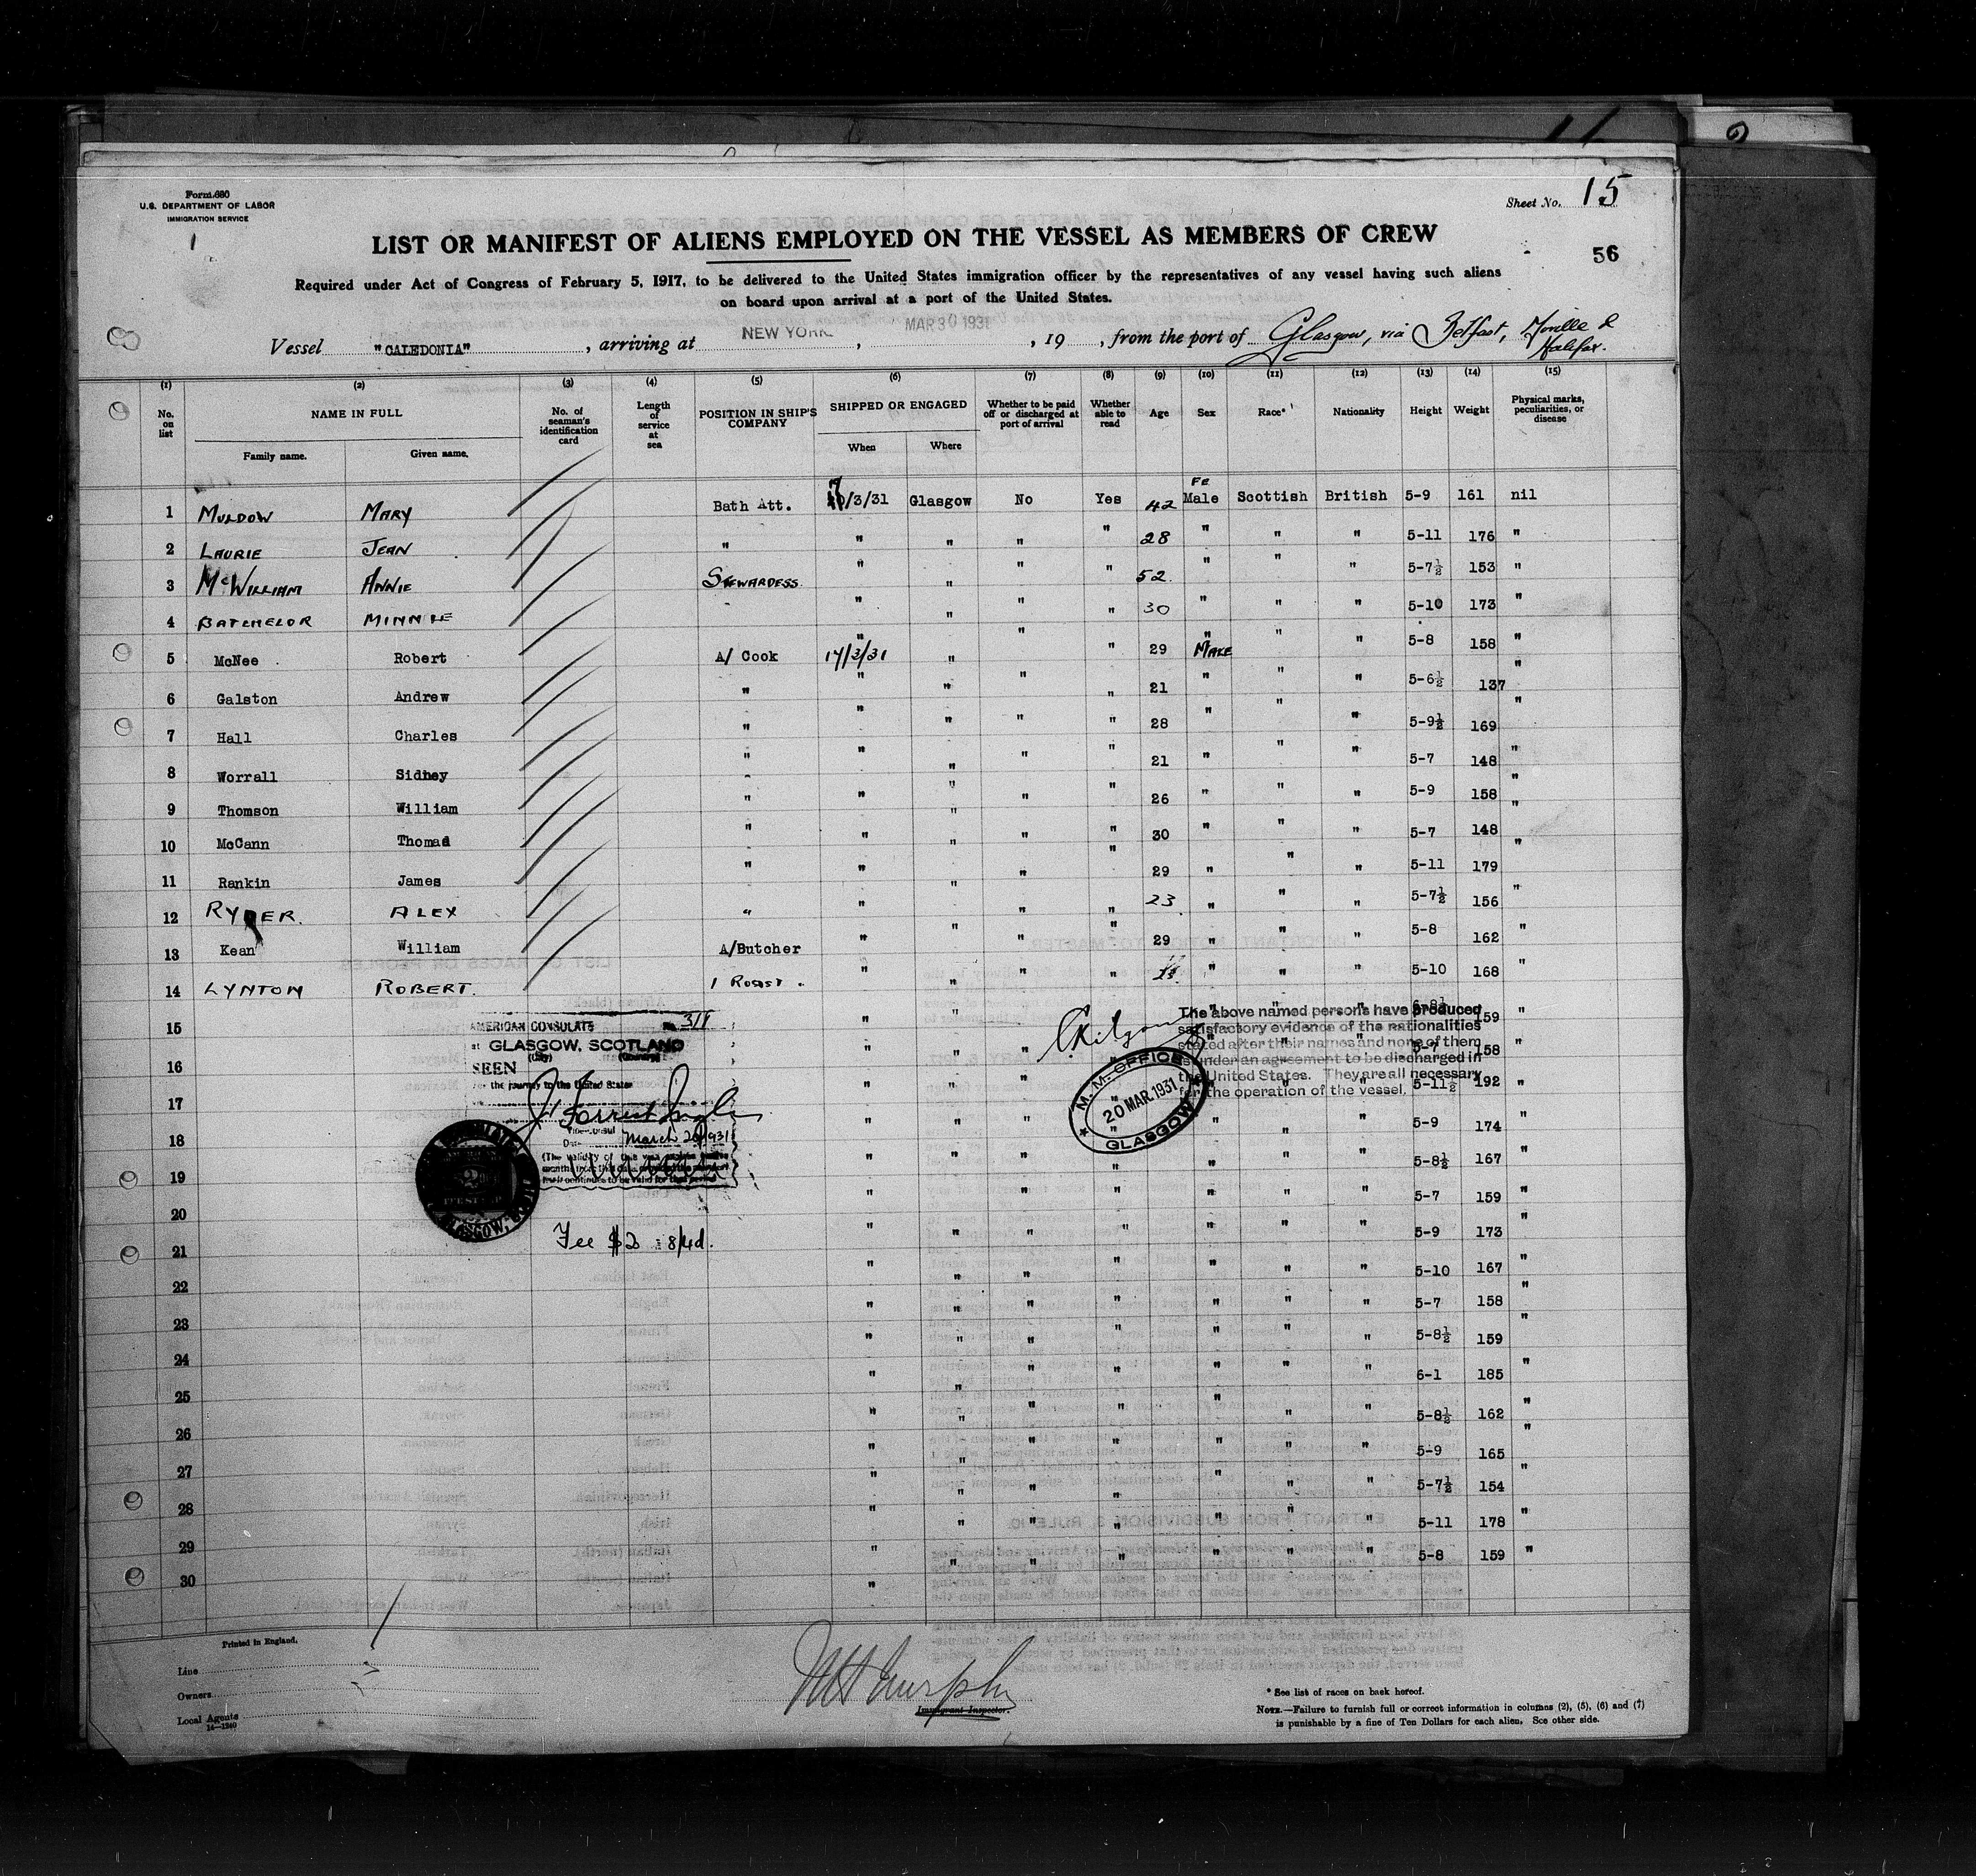 Form 680
U.S. DEPARTMENT OF LABOR
IMMIGRATION SERVICE
1
Sheet No. 15
LIST OR MANIFEST OF ALIENS EMPLOYED ON THE VESSEL AS MEMBERS OF CREW
56
Required under Act of Congress of February 5, 1917, to be delivered to the United States immigration officer by the representatives of any vessel having such aliens
on board upon arrival at a port of the United States.
Vessel "CALEDONIA", arriving at NEW YORK, MAR 30 1931, 19 , from the port of Glasgow, via Belfast, Moville & Halifax.
(1) (2) (3) (4) (5) (6) (7) (8) (9) (10) (11) (12) (13) (14) (15)
No. on list NAME IN FULL No. of seaman's identification card Length of service at sea POSITION IN SHIP'S COMPANY SHIPPED OR ENGAGED Whether to be paid off or discharged at port of arrival Whether able to read Age Sex Race* Nationality Height Weight Physical marks, peculiarities, or disease
Family name. Given name. When Where
1 MULDOW MARY Bath Att. /3/31 Glasgow No Yes 42 Fe Male Scottish British 5-9 161 nil
2 LAURIE JEAN " " " " " 28 " " " 5-11 176 "
3 McWILLIAM ANNIE STEWARDESS " " " " 52. " " " 5-7½ 153 "
4 BATCHELOR MINNIE " " " " 30 " " " 5-10 173 "
5 McNee Robert A/ Cook 17/3/31 " " " 29 MALE " " 5-8 158 "
6 Galston Andrew " " " " " 21 " " " 5-6½ 137 "
7 Hall Charles " " " " " 28 " " " 5-9½ 169 "
8 Worrall Sidney " " " " " 21 " " " 5-7 148 "
9 Thomson William " " " " " 26 " " " 5-9 158 "
10 McCann Thomas " " " " " 30 " " " 5-7 148 "
11 Rankin James " " " " " 29 " " " 5-11 179 "
12 RYDER. ALEX " " " " " 23 " " " 5-7½ 156 "
13 Kean William A/Butcher " " " " 29 " " " 5-8 162 "
14 LYNTON ROBERT. 1 ROAST. " " " " " " " 5-10 168 "
15 " " " " " 159 "
16 " " " " " 5-7 158 "
17 " " " " " 5-11½ 192 "
18 " " " " " " " 5-9 174 "
19 " " " " " " " 5-8½ 167 "
20 " " " " " " " 5-7 159 "
21 " " " " " " " 5-9 173 "
22 " " " " " " " 5-10 167 "
23 " " " " " " " 5-7 158 "
24 " " " " " " " 5-8½ 159 "
25 " " " " " " " 6-1 185 "
26 " " " " " " " 5-8½ 162 "
27 " " " " " " " 5-9 165 "
28 " " " " " " " 5-7½ 154 "
29 " " " " " " " 5-11 178 "
30 " " " " " " " 5-8 159 "
AMERICAN CONSULATE
at GLASGOW, SCOTLAND
(City) (Country)
SEEN
For the journey to the United States
Vice Consul
Date March 20 1931
Fee $2 = 8/4d.
The above named persons have produced
satisfactory evidence of the nationalities
stated after their names and none of them
is under an agreement to be discharged in
the United States. They are all necessary
for the operation of the vessel.
M. M. OFFICE
20 MAR. 1931
GLASGOW
Printed in England.
Line
Owners
Local Agents
14—1240
Immigrant Inspector.
* See list of races on back hereof.
NOTE.—Failure to furnish full or correct information in columns (2), (5), (6) and (7)
is punishable by a fine of Ten Dollars for each alien. See other side.